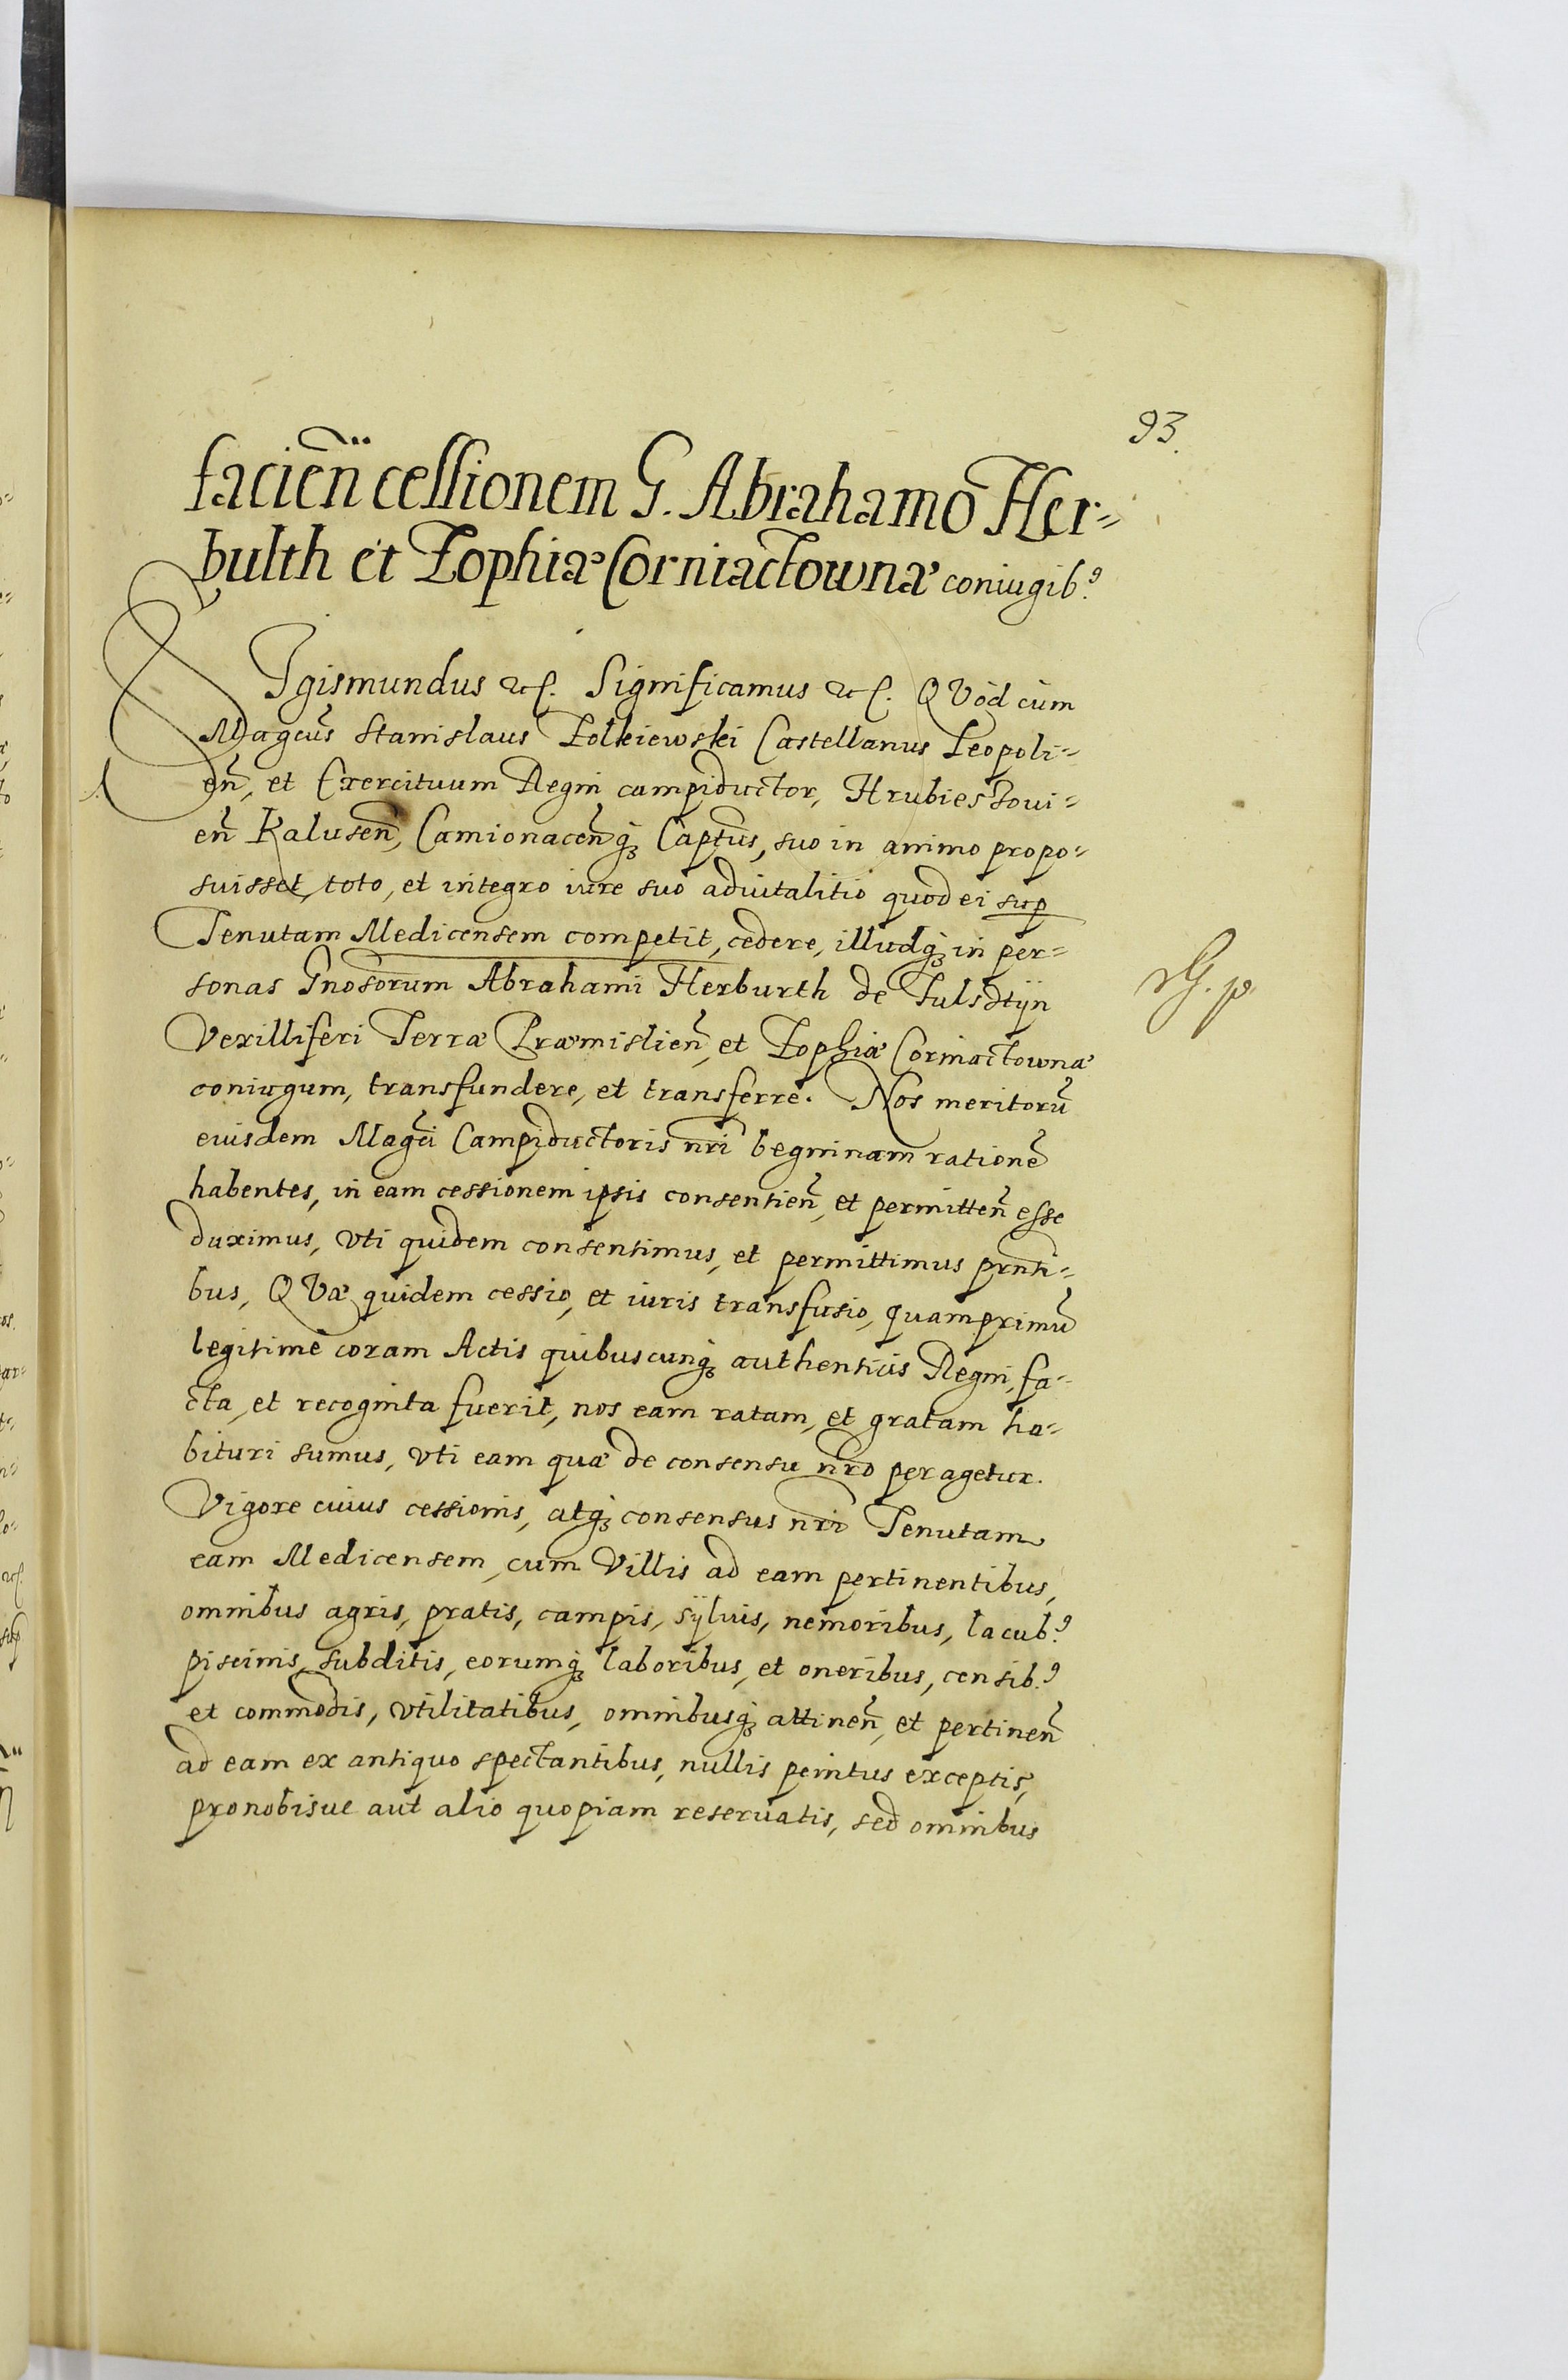 93.
facien̄ cessionem G. Abrahamo Her=
bulth et Zophiæ Corniactownæ coniugib9
SIgismundus etc. Significamus etc. QVod cùm
Magcus Stanislaus Zolkiewski Castellanus Leopoli=
en̄, et Exercituum Regni campiductor, Hrubiestoui=
en̄ Kalusen̄, Camionacen̄q́ꝫ Captus, suo in animo propo=
suisset, toto, et integro iure suo aduitalitio quod ei sup
Tenutam Medicensem competit, cedere, illudq́ꝫ in per=
sonas Gnosorum Abrahami Herburth de Fulsdtÿn
Vexilliferi Terræ Præmislien̄, et Zophiæ Corniactownæ
coniugum, transfundere, et transferre. Nos meritorū
eiusdem Magci Campiductoris nri begninam rationē
habentes, in eam cessionem ipsis consentien̄, et permitten̄ esse
duximus, vti quidem consentimus, et permittimus prnti=
bus, QVæ quidem cessio, et iuris transfusio, quamprimū
legitimè coram Actis quibuscunq́ꝫ authenticis Regni, fa=
cta, et recognita fuerit, nos eam ratam, et gratam ha=
bituri sumus, vti eam quæ de consensu nro peragetur.
Vigore cuius cessionis, atq́ꝫ consensus nri Tenutam
eam Medicensem, cum Villis ad eam pertinentibus,
omnibus agris, pratis, campis, sÿluis, nemoribus, lacub9
piscinis, subditis, eorumq́ꝫ laboribus, et oneribus, censib9
et commodis, vtilitatibus, omnibusq́ꝫ attinen̄, et pertinen̄
ad eam ex antiquo spectantibus, nullis penitus exceptis,
pronobisue aut alio quopiam reseruatis, sed omnibus